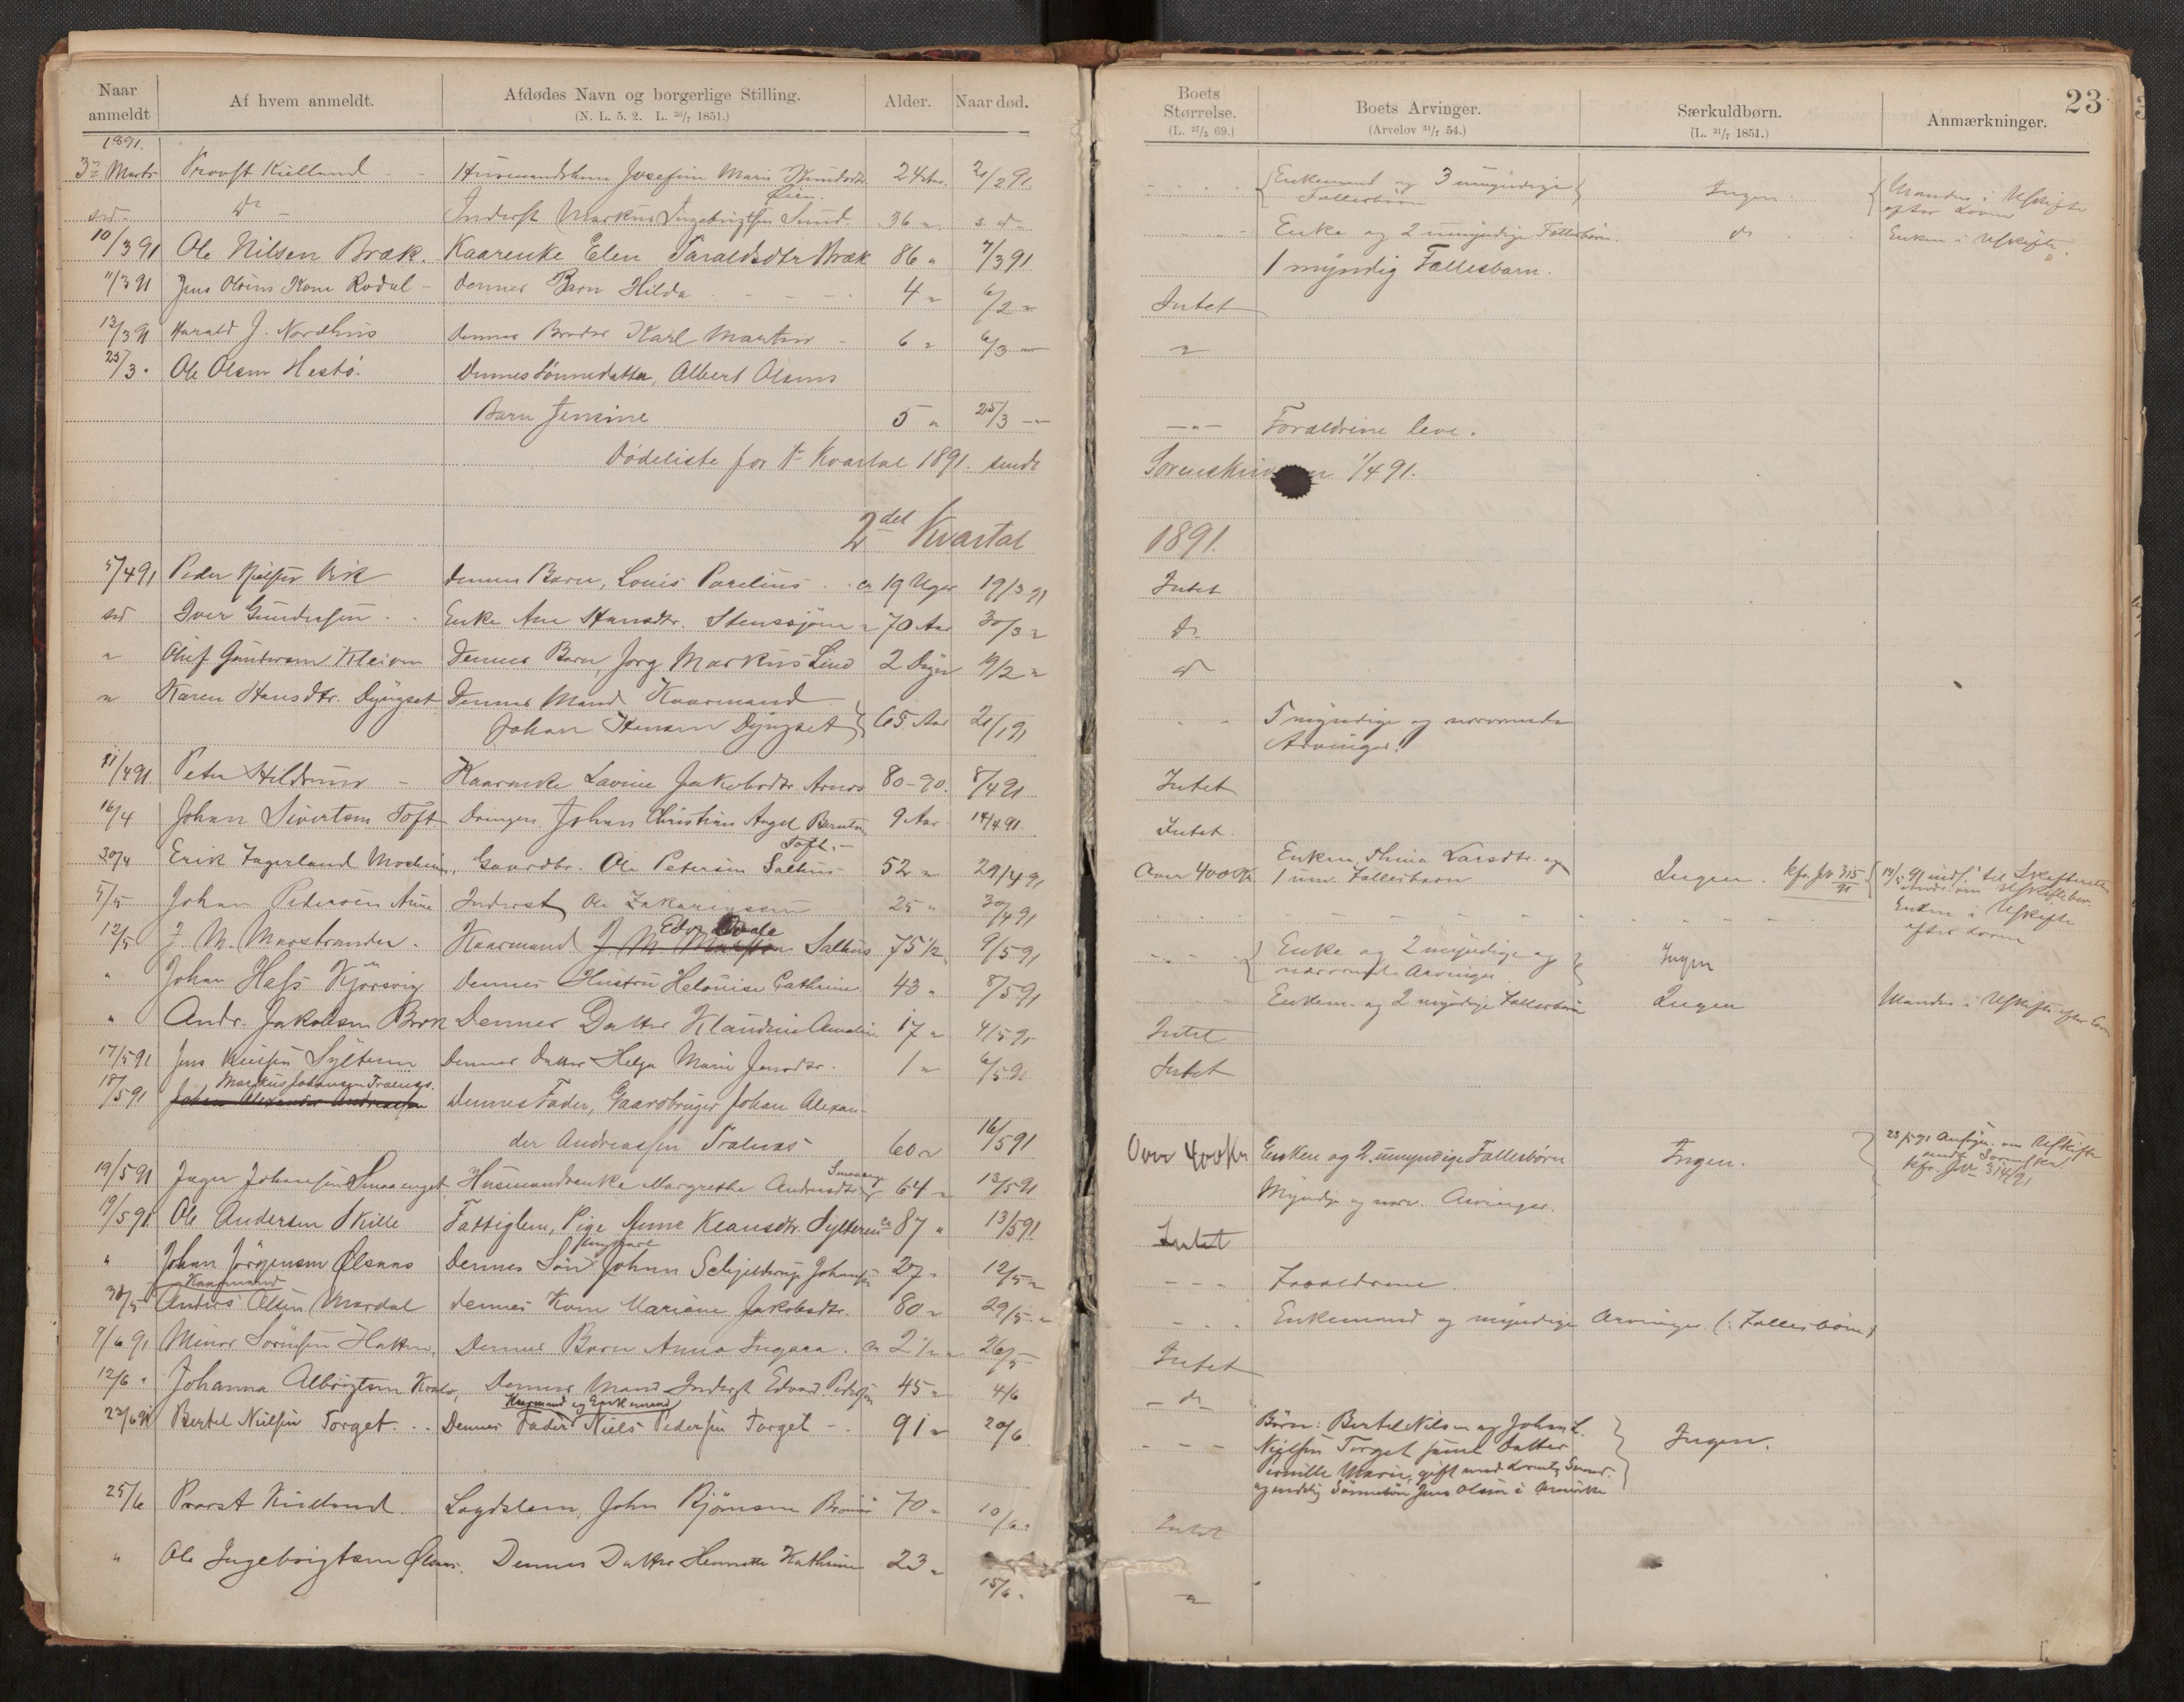 Naar anmeldt
Af hvem anmeldt.
Afdødes Navn og borgerlige Stilling.
(N. L. 5. 2. L. 30/7 1851.)
Alder.
Naar død.
Boets Størrelse.
(L. 27/3 69.)
Boets Arvinger.
(Arvelov 31/7 54.)
Særkuldbørn.
(L. 31/7 1851.)
Anmærkninger.
23
1891.
3 Marts Provst Kielland Josefine Marie Knudsdtr. 24 Aar 21/2 91 Enkemand og 3 umyndige Ingen Manden i Uskifte
Øien. Fællesbørn efter Loven
do Inderst Markus Ingebrigtsen Sund 36 " s d Enke og 2 umyndige Fællesbørn do Enken i Uskifte
10/3 91 Ole Nilsen Bræk. Kaarenke Elen Taraldsdtr Bræk 86 " 7/3 91 1 myndig Fællesbarn.
11/3 91 Jens Olsens Kone Rodal Dennes Barn Hilda 4 " 6/2 " Intet
13/3 91 Harald J. Nordhus Dennes Broder Karl Martin 6 " 6/3 " "
25/3 " Ole Olsen Hestø. Dennes Sønnedatter, Albert Olsens
Barn Jensine 5 " 25/3 " — " — Forældrene leve.
Dødeliste for 1ste Kvartal 1891. sendt Sorenskriveren 1/4 91.
2det Kvartal 1891.
5/4 91 Peder Nielsen Vik Dennes Barn, Louis Parelius ca 19 Uger 19/3 91 Intet
Iver Gundersen Enke Ane Hansdtr. Stenssjøen 70 Aar 30/3 " do
" Oluf Gundersen Kleiven Dennes Barn, Jørg Markus Lind 2 Dage 19/2 " do
" Karen Hansdtr. Dyngset Dennes Mand Kaarmand
Johan Hansen Dyngset 65 Aar 21/1 91 5 myndige og nærværende
Arvinger.
11/4 91 Peter Hildrum Kaarenke Lavine Jakobsdtr. Arnes 80-90. 8/4 91 Intet
16/4 Johan Sivertsen Toft Drengen Johan Christian Angel Berntsen 9 Aar 14/4 91 Intet.
Toft.
30/4 Erik Fagerland Gaardbr. Ole Petersen Salthus 52 " 29/4 91 Over 400 Kr Enken, Thina Larsdtr. og Ingen. kfr. Jr 315/91
1 um. Fællesbarn
5/5 Johan Pedersen Aune Inderst Ole Zakariassen 25 " 30/4 91 Enken i Uskifte
efter Loven
12/5 J. M. Marstrander. Kaarmand Salthus 75 1/2 9/5 91 Enke og 2 myndige og Ingen
nærværende Arvinger
" Johan Hess Kjørsvig Dennes Hustru Helouise Cathrine 43 " 8/5 91 Enkem. og 2 myndige Fællesbørn Ingen Manden i Uskifte efter Loven
" Andr. Jakobsen Dennes Datter Klaudine Amalie 17 " 4/5 91 Intet
17/5 91 Jens Nielsen Sylteren Dennes Datter Helga Marie Jensdtr. 1 " 6/5 91 Intet
Markus Johansen Tralnes.
18/5 91 Johan Alexander Andreassen Dennes Fader, Gaardbruger Johan Alexan-
der Andreassen Tralnes 60 " 16/5 91 Over 400 Kr Enken og 2 umyndige Fællesbørn Ingen. 23/5 91 Ansøgn. om Uskifte
sendt Sorenskr.
kfr. Jr 314/91
19/5 91 Inger Johansen Smaaenget Husmandsenke Margrethe Andersdtr. 64 " 13/5 91 Myndige og nærv. Arvinger.
19/5 91 Ole Andersen Skille Fattiglem, Pige Anne Klausdtr. Sylteren ca 87 " 13/5 91 Intet
Ungkarl
" Johan Jørgensen Ølsnes Dennes Søn Johan Schjelderup Johansen 27 " 12/5 " Forældrene
Kaarmand
30/5 Anders Olsen Mardal Dennes Kone Mariane Jakobsdtr. 80 " 29/5 " Enkemand og myndige Arvinger (: Fællesbørn)
9/6 91 Minor Sørensen Dennes Barn Anna Ingara. ca 2 1/2 " 26/5 Intet
12/6 " Johanna Albrigtsen Dennes Mand Inderst Edvard Pedersen 45 " 4/6 do
Kaarmand og Enkemand
23/6 91 Bertel Nielsen Torget Dennes Fader Niels Pedersen Torget 91 " 20/6 Børn: Bertel Nilsen og Johan L. Ingen.
Nielsen Torget samt Datter
Pernille Marie, gift med Lorents
og endelig Sønnesøn Jens Olsen i Amerika
25/6 Provst Kielland Lægdslem, John Bjørnsen 70 " 10/6 " Intet
" Ole Ingebrigtsen Ølsnes. Dennes Datter Hennette Kathrine 23 " 15/6 " "